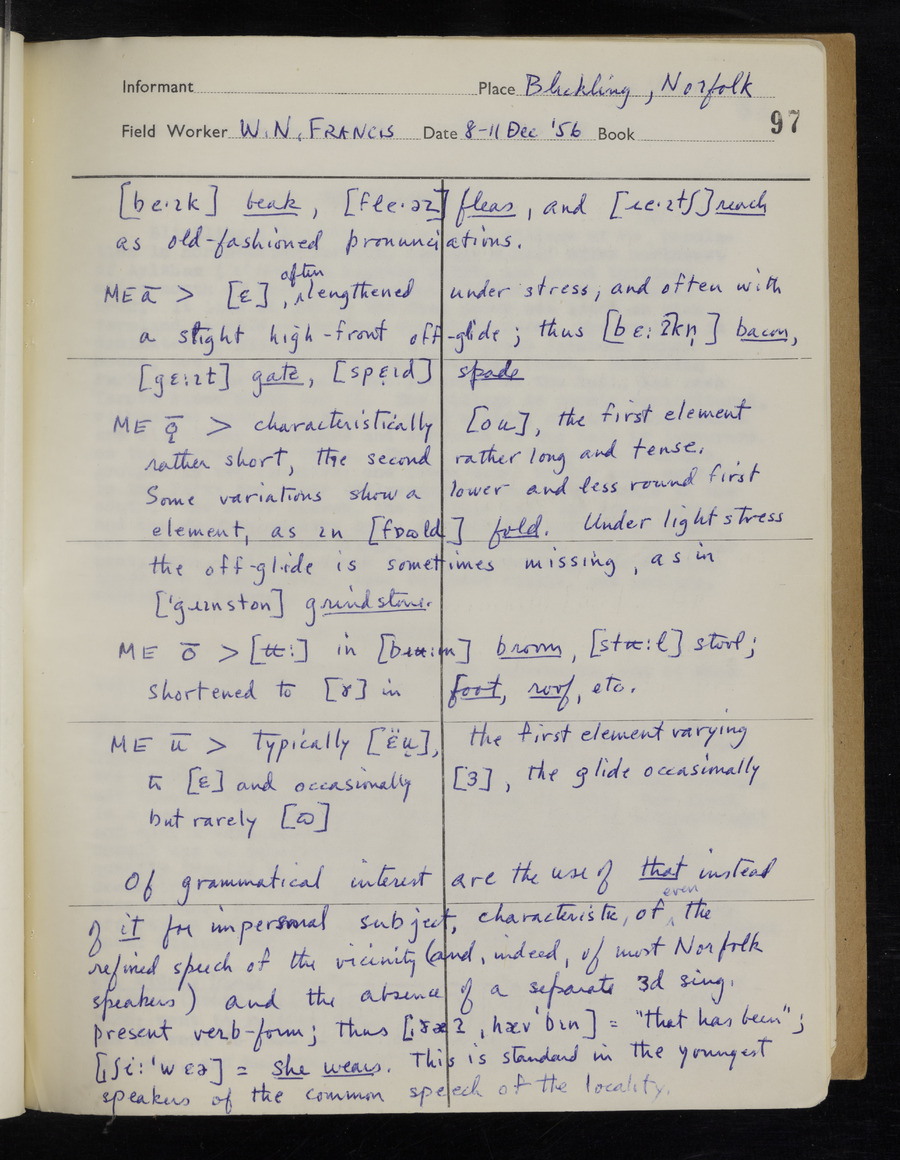 Informant Place Blickling, Norfolk
Field Worker W. N. FRANCIS Date 8-11 Dec '56 Book 97
[be·ɪk] beak, [fle·əz] fleas, and [ɹe·ɪtʃ] reach
as old-fashioned pronunciations.
ME ā > [ɛ], often lengthened under stress, and often with
a slight high-front off-glide; thus [bɛ:ɪkn̩] bacon,
[gɛ:ɪt] gate, [spɛɪd] spade
ME ǭ > characteristically [ou], the first element
rather short, the second rather long and tense.
Some variations show a lower and less round first
element, as in [fɒɷld] fold. Under light stress
the off-glide is sometimes missing, as in
['gɹɪnston] grindstone.
ME ō > [ʉ:] in [bɹʉ:m] broom, [stʉ:l] stool;
shortened to [ɤ] in foot, roof, etc.
ME ū > typically [ɛ̈u], the first element varying
to [ɛ] and occasionally [ɜ], the glide occasionally
but rarely [ɷ]
Of grammatical interest are the use of that instead
of it for impersonal subject, characteristic, of even the
refined speech of the vicinity (and, indeed, of most Norfolk
speakers) and the absence of a separate 3d sing.
present verb-form; thus [ˌðæʔ ˌhæv ˈbɪn] = "that has been";
[ˌʃi: ˈwɛə] = she wears. This is standard in the youngest
speakers of the common speech of the locality.